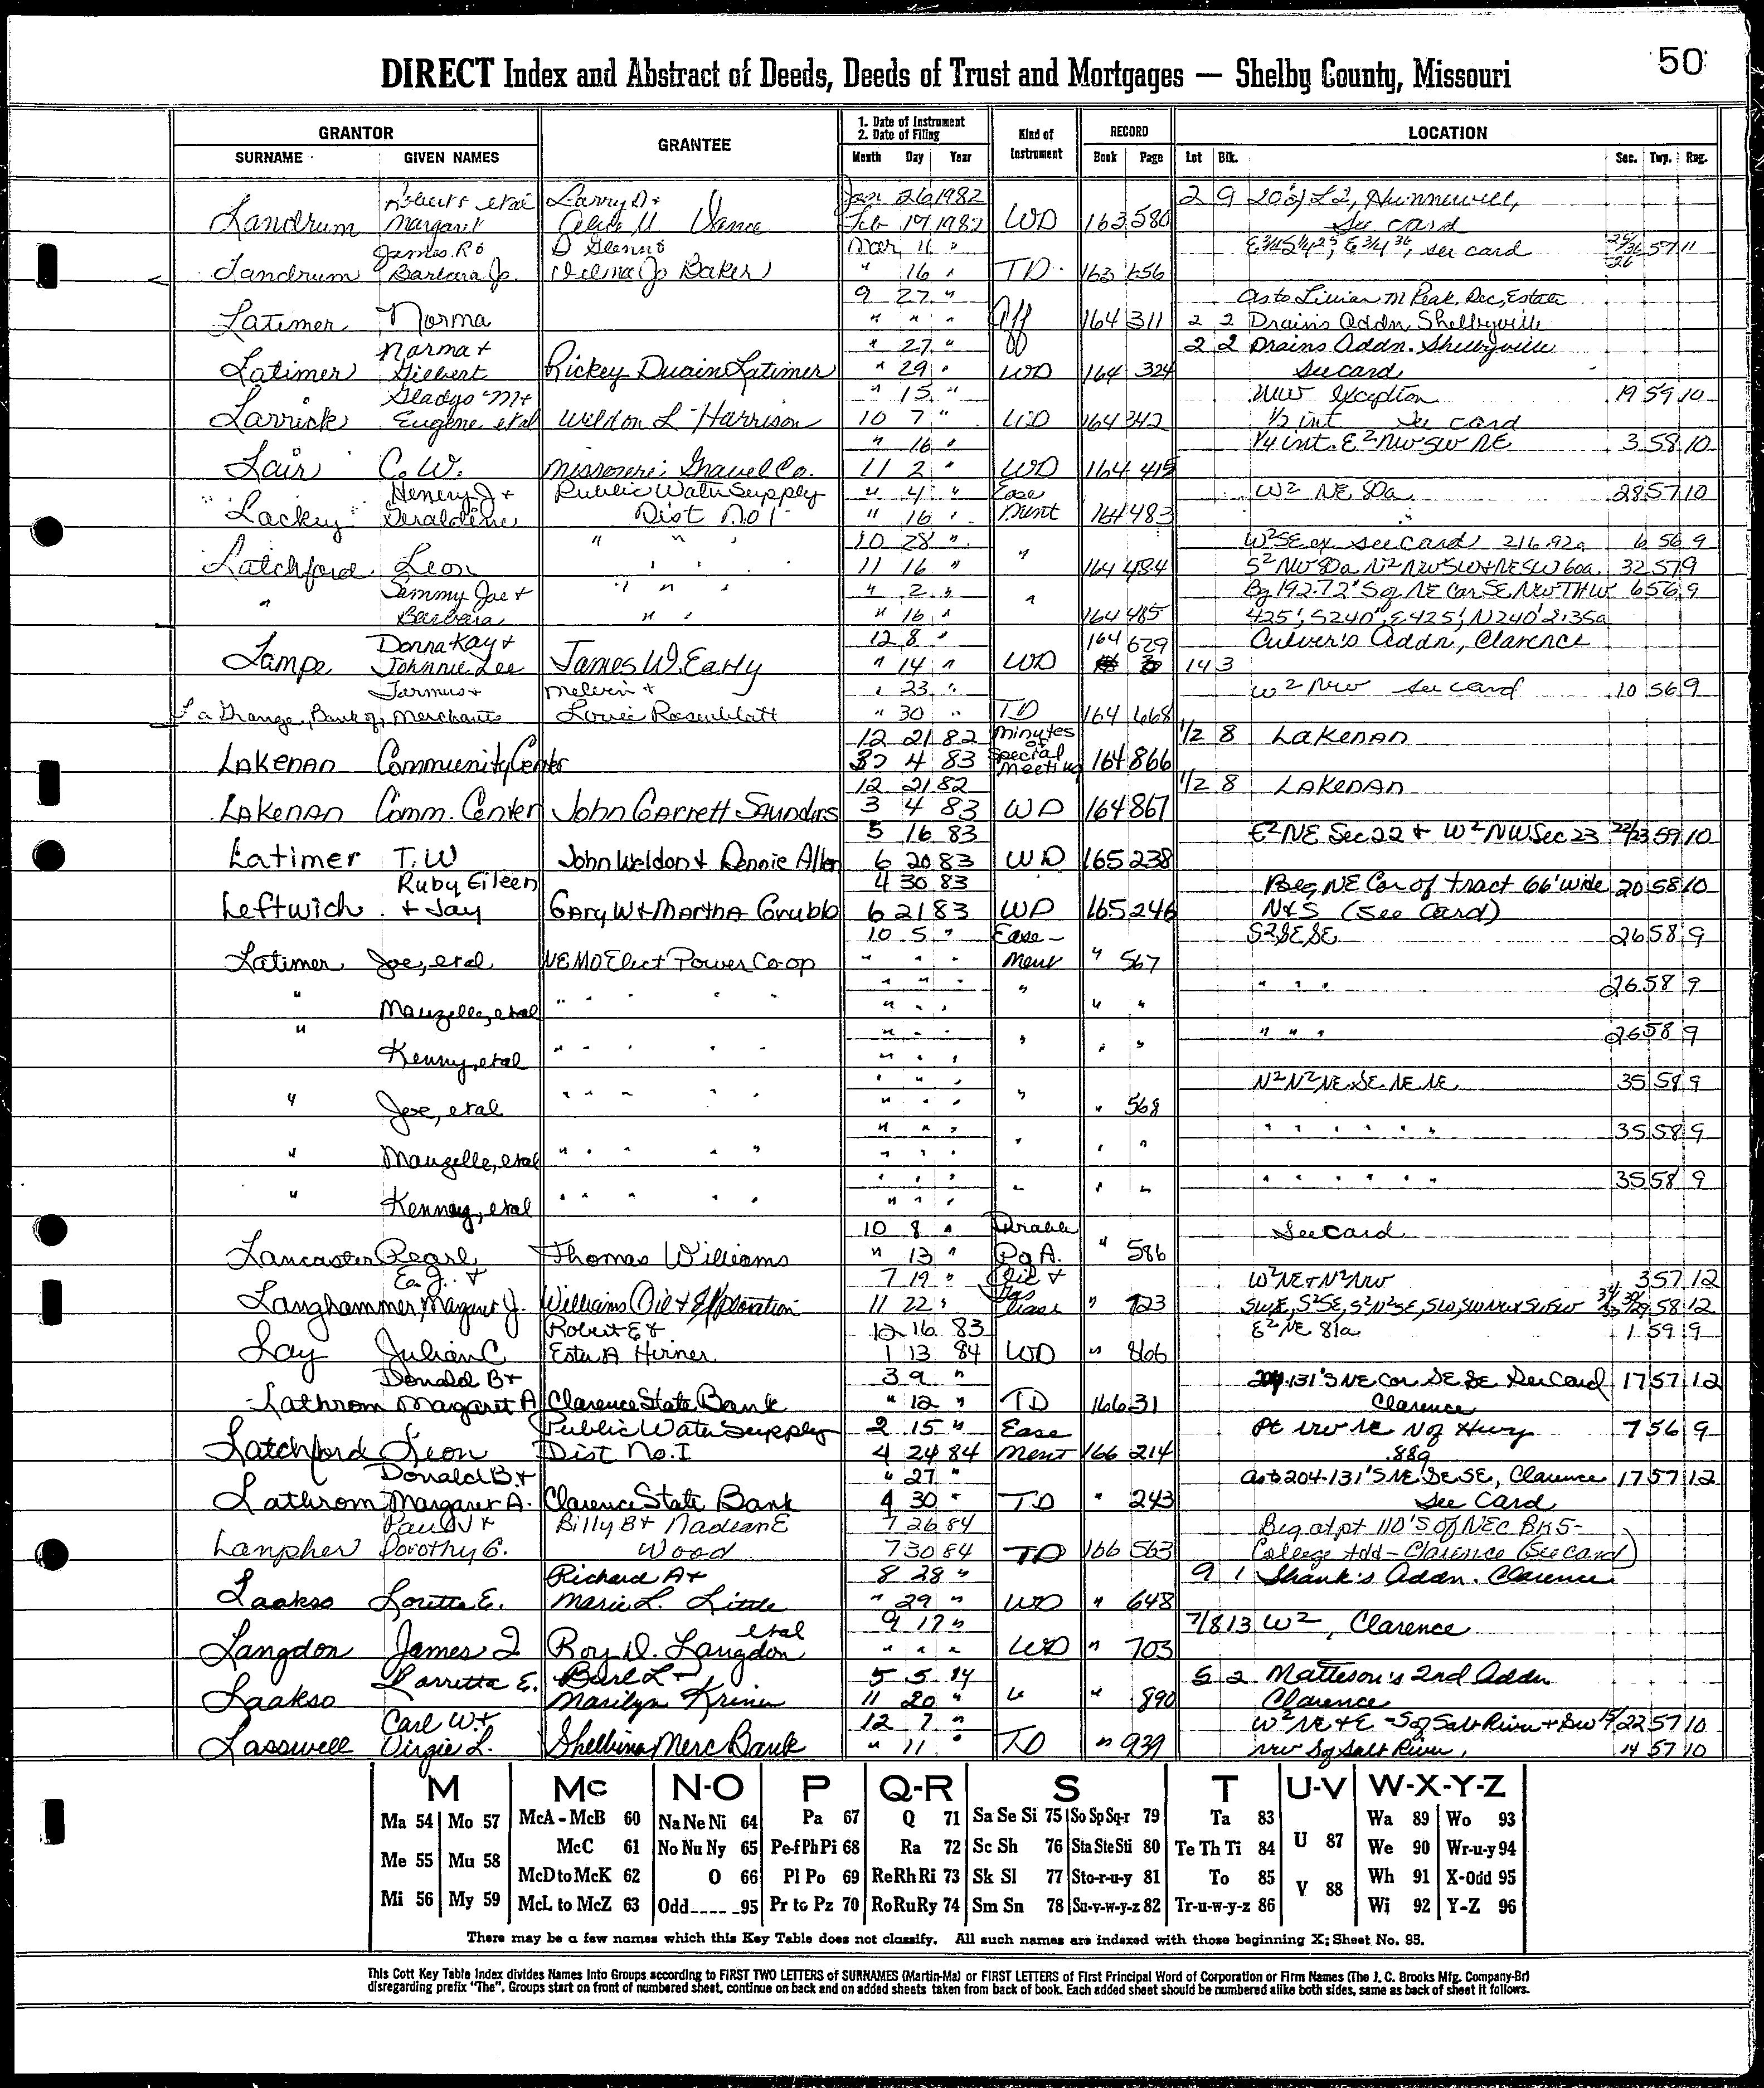 50
DIRECT Index and Abstract of Deeds, Deeds of Trust and Mortgages — Shelby County, Missouri
GRANTOR
SURNAME GIVEN NAMES
GRANTEE
1. Date of Instrument
2. Date of Filing
Month Day Year
Kind of Instrument
RECORD
Book Page
LOCATION
Lot Blk. Sec. Twp. Rng.
Robert et al Larry D + Jan 26 1982 2 9 20' of L2, Hunnewell,
Landrum Margaret Vance Feb 19 1982 WD 163 580 See card
James R & D Glenn & Mar 11 " see card 57 11
Landrum Barbara Jo Baker " 16 " TD 163 656
9 27 " As to Lillian M Peak, Dec, Estate
Latimer Norma " " " Aff 164 311 2 2 Drains Addn, Shelbyville
Norma + " 27 " 2 2 Drains Addn. Shelbyville
Latimer Gilbert Rickey Duain Latimer " 29 " WD 164 324 See card
Gladys M + " 15 " NW Exception 19 59 10
Larrick Eugene et al Weldon L Harrison 10 7 " WD 164 342 1/2 int See card
" 16 " 1/4 int. E2 NW SW NE 3 58 10
Lair C. W. Missouri Gravel Co. 11 2 " WD 164 415
Henery J + Public Water Supply " 4 " Ease W2 NE 80a 28 57 10
Lackey Geraldine Dist No 1 " 16 " ment 164 483
" " " 10 28 " " W2SE ex see card 216.92a 6 56 9
Latchford Leon " " " 11 16 " 164 484 S2 NW 80a N2 NW SW + NE SW 60a 32 57 9
" Sammy Joe + " " " " 2 " " Bg 192.72' S of NE Cor SE NW TH W 6 56 9
Barbara " " " 16 " 164 485 425', S240', E425', N240' 2.35a
Donna Kay + 12 8 " 164 629 Culver's Addn, Clarence
Lampe Johnnie Lee James W. Early " 14 " WD 14 3
Farmers + Melvin + " 23 " W2 NW see card 10 56 9
La Grange, Bank of, Merchants Louie Rosenblatt " 30 " TD 164 668
12 21 82 Minutes of 1/2 8 Lakenan
Lakenan Community Center 3 4 83 Special Meeting 164 866
12 21 82 1/2 8 Lakenan
Lakenan Comm. Center John Garrett Saunders 3 4 83 WD 164 867
5 16 83 E2 NE Sec 22 + W2 NW Sec 23 22/23 59 10
Latimer T.W John Weldon + Dennie Allen 6 20 83 WD 165 238
Ruby Eileen 4 30 83 Beg NE Cor of tract 66' wide 20 58 10
Leftwich + Jay Gary W + Martha Grubb 6 21 83 WD 165 246 N&S (See Card)
10 5 " Ease- S2 SE SE 26 58 9
Latimer Joe, et al NE MO Elect Power Co-op " " " ment " 567
" " " " " " " " " 26 58 9
Mauzelle, et al " " " " " " " " " "
" " " " " " " " 26 58 9
Kenny, et al " " " " " " " " " "
" " " N2 N2 NE SE NE NE 35 58 9
" Joe, et al " " " " " " " " " " 568
" " " " " " " " " 35 58 9
" Mauzelle, et al " " " " " " " " " " "
" " " " " " " " " 35 58 9
" Kenney, et al " " " " " " " " " " "
10 8 " Durable See card
Lancaster Pearl Thomas Williams " 13 " P of A. " 586
Ea. J. + 7 19 " Oil + W2NE + N2NW 3 57 12
Langhammer, Margaret J. Williams Oil + Exploration 11 22 " Gas Lease " 723 58 12
Robert E + 12 16 83 E2 NE 81a 1 59 9
Lay Julian C Ester A Hirner 1 13 84 WD " 866
Donald B + 3 9 " 204.131'S NE Cor SE SE See Card 17 57 12
Lathrom Margaret A Clarence State Bank " 12 " TD 166 31 Clarence
Public Water Supply 2 15 " Ease Pt NW NE N of Hwy 7 56 9
Latchford Leon Dist No. I 4 24 84 ment 166 214 .88a
Donald B. + " 27 " As to 204.131'S NE SE SE, Clarence 17 57 12
Lathrom Margaret A. Clarence State Bank 4 30 " TD " 243 See Card
Paul W + Billy B + Nadean E 7 26 84 Beg at pt 110'S of NEC Bk 5-
Lanpher Dorothy G. Wood 7 30 84 TD 166 563 College Add - Clarence (See card)
Richard A + 8 28 " 9 1 Shank's Addn. Clarence
Laakso Loretta E. Marie L. Little " 29 " WD " 648
et al 9 17 " 7/8 13 W2, Clarence
Langdon James I Roy D. Langdon " " " WD " 703
Lorretta E. Burl L + 5 5 84 5 2 Matteson's 2nd Addn
Laakso Marilyn Kriner 11 20 " " " 890 Clarence
Carl W + 12 7 " W2 NE + E - S of Salt River + SW 22 57 10
Lasswell Virgie L. Shelbina Merc Bank " 11 " TD " 939 NW S of Salt River, 14 57 10
M Mc N-O P Q-R S T U-V W-X-Y-Z
Ma 54 Mo 57 McA - McB 60 Na Ne Ni 64 Pa 67 Q 71 Sa Se Si 75 So Sp Sq-r 79 Ta 83 U 87 Wa 89 Wo 93
Me 55 Mu 58 McC 61 No Nu Ny 65 Pe-f Ph Pi 68 Ra 72 Sc Sh 76 Sta Ste Sti 80 Te Th Ti 84 We 90 Wr-u-y 94
McD to McK 62 O 66 Pl Po 69 Re Rh Ri 73 Sk Sl 77 Sto-r-u-y 81 To 85 V 88 Wh 91 X-Odd 95
Mi 56 My 59 McL to McZ 63 Odd 95 Pr to Pz 70 Ro Ru Ry 74 Sm Sn 78 Su-v-w-y-z 82 Tr-u-w-y-z 86 Wi 92 Y-Z 96
There may be a few names which this Key Table does not classify. All such names are indexed with those beginning X; Sheet No. 95.
This Cott Key Table Index divides Names into Groups according to FIRST TWO LETTERS of SURNAMES (Martin-Ma) or FIRST LETTERS of First Principal Word of Corporation or Firm Names (The J. C. Brooks Mfg. Company-Br)
disregarding prefix "The". Groups start on front of numbered sheet, continue on back and on added sheets taken from back of book. Each added sheet should be numbered alike both sides, same as back of sheet it follows.